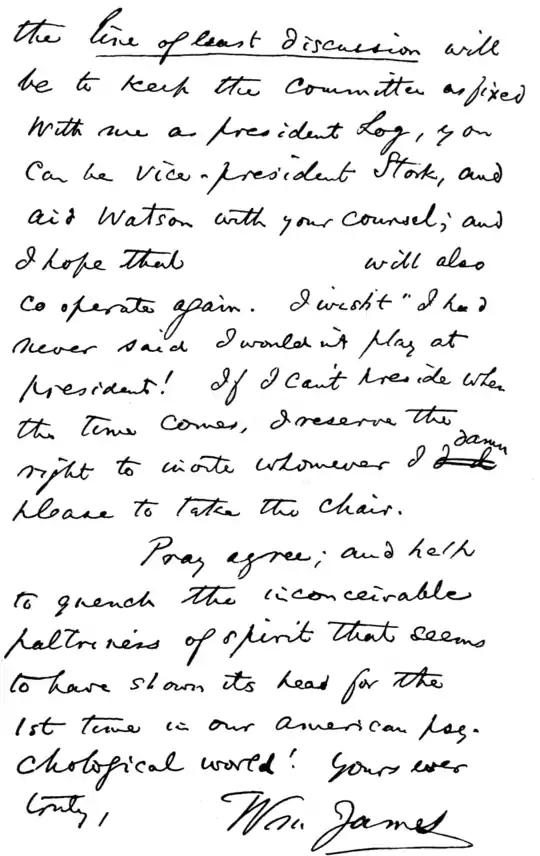 the line of least discussion will
be to keep the Committee as fixed
With me as president Log, you
Can be Vice-president Stork, and
aid Watson with your counsel; and
I hope that will also
cooperate again. I wisht "I had
never said I wouldn't play at
president! If I can't preside when
the time comes, I reserve the
damn
right to invite whomever I
please to take the chair.
Pray agree; and help
to quench the inconceivable
paltriness of spirit that seems
to have shown its head for the
1st time in our american psy-
chological world! Yours ever
truly, Wm. James